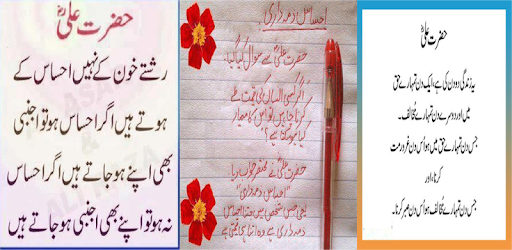 حضرت علیؓ
رشتے خون کے نہیں احساس کے
ہوتے ہیں اگر احساس ہو تو اجنبی
بھی اپنے ہو جاتے ہیں اگر احساس
نہ ہو تو اپنے بھی اجنبی ہو جاتے ہیں
احساس ذمہ داری
حضرت علیؓ سے سوال کیا گیا،
اگر کسی انسان کی قیمت طے
کرنا چاہیں تو اس کا معیار
کیا ہو سکتا ہے؟
حضرت علیؓ نے مختصر جواب دیا
"احساس ذمہ داری"
یعنی جس شخص میں جتنا احساس
ذمہ داری ہے وہ اتنا ہی قیمتی ہے
حضرت علیؓ
یہ زندگی دو دن کی ہے، ایک دن تمہارے حق
میں اور دوسرے دن تمہارے مخالف۔
جس دن تمہارے حق میں ہو اس دن غرور مت
کرنا، اور
جس دن تمہارے مخالف ہو اس دن صبر کرنا۔